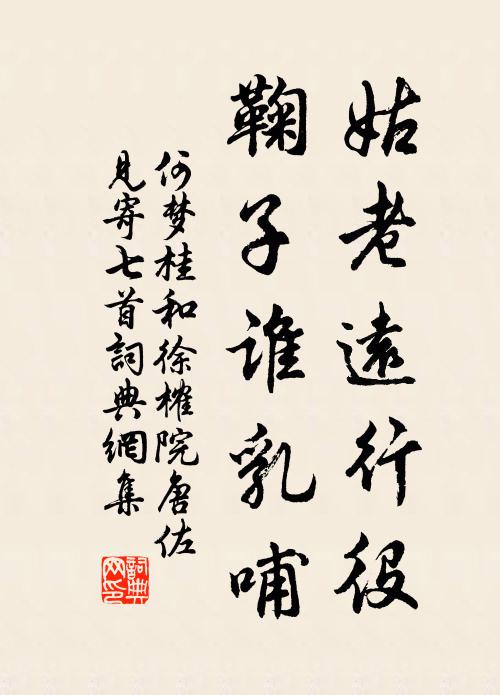 姑老遠行役
鞠子誰乳哺
何梦桂和徐榷院唐佐
見寄七首詞典網集
詞典
网印